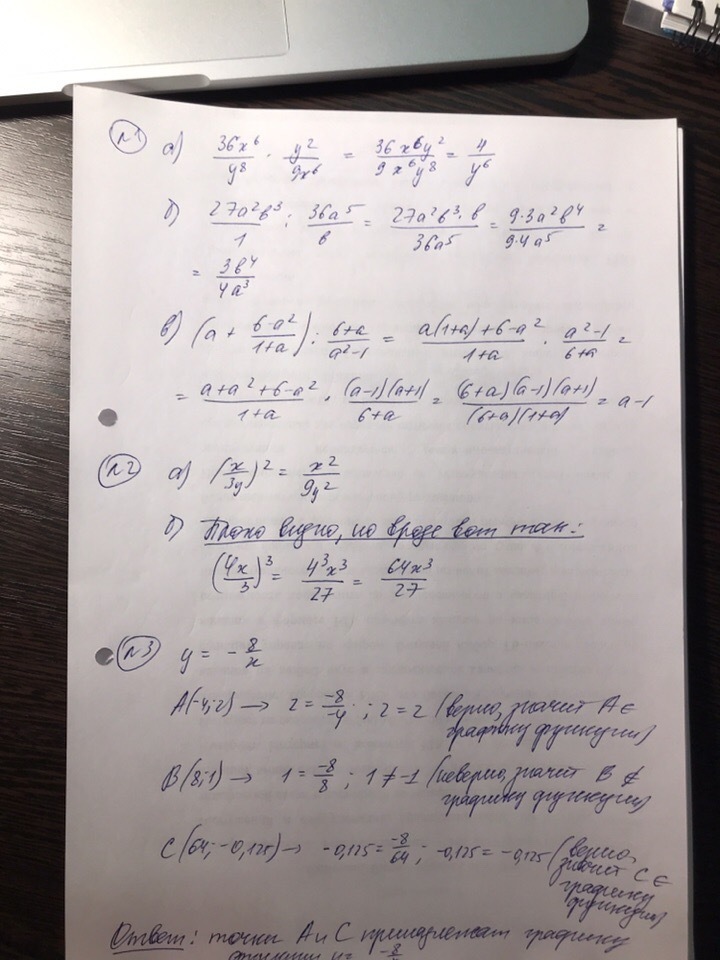 №1 а) 36x⁶/y⁸ · y²/9x⁶ = 36x⁶y²/9x⁶y⁸ = 4/y⁶
б) 27a²b³/1 : 36a⁵/b = 27a²b³·b/36a⁵ = 9·3a²b⁴/9·4a⁵ =
= 3b⁴/4a³
в) (a + 6-a²/1+a) : 6+a/a²-1 = a(1+a)+6-a²/1+a · a²-1/6+a =
= a+a²+6-a²/1+a · (a-1)(a+1)/6+a = (6+a)(a-1)(a+1)/(6+a)(1+a) = a-1
№2 а) (x/3y)² = x²/9y²
б) Плохо видно, но вроде вот так:
(4x/3)³ = 4³x³/27 = 64x³/27
№3 y = -8/x
A(-4;2) → 2 = -8/-4 ; 2=2 (верно, значит A ∈
графику функции)
B(8;1) → 1 = -8/8 ; 1 ≠ -1 (неверно, значит B ∉
графику функции)
C(64;-0,125) → -0,125 = -8/64 ; -0,125 = -0,125 (верно,
значит C ∈
графику
функции)
Ответ: точки A и C принадлежат графику
функции y = -8/